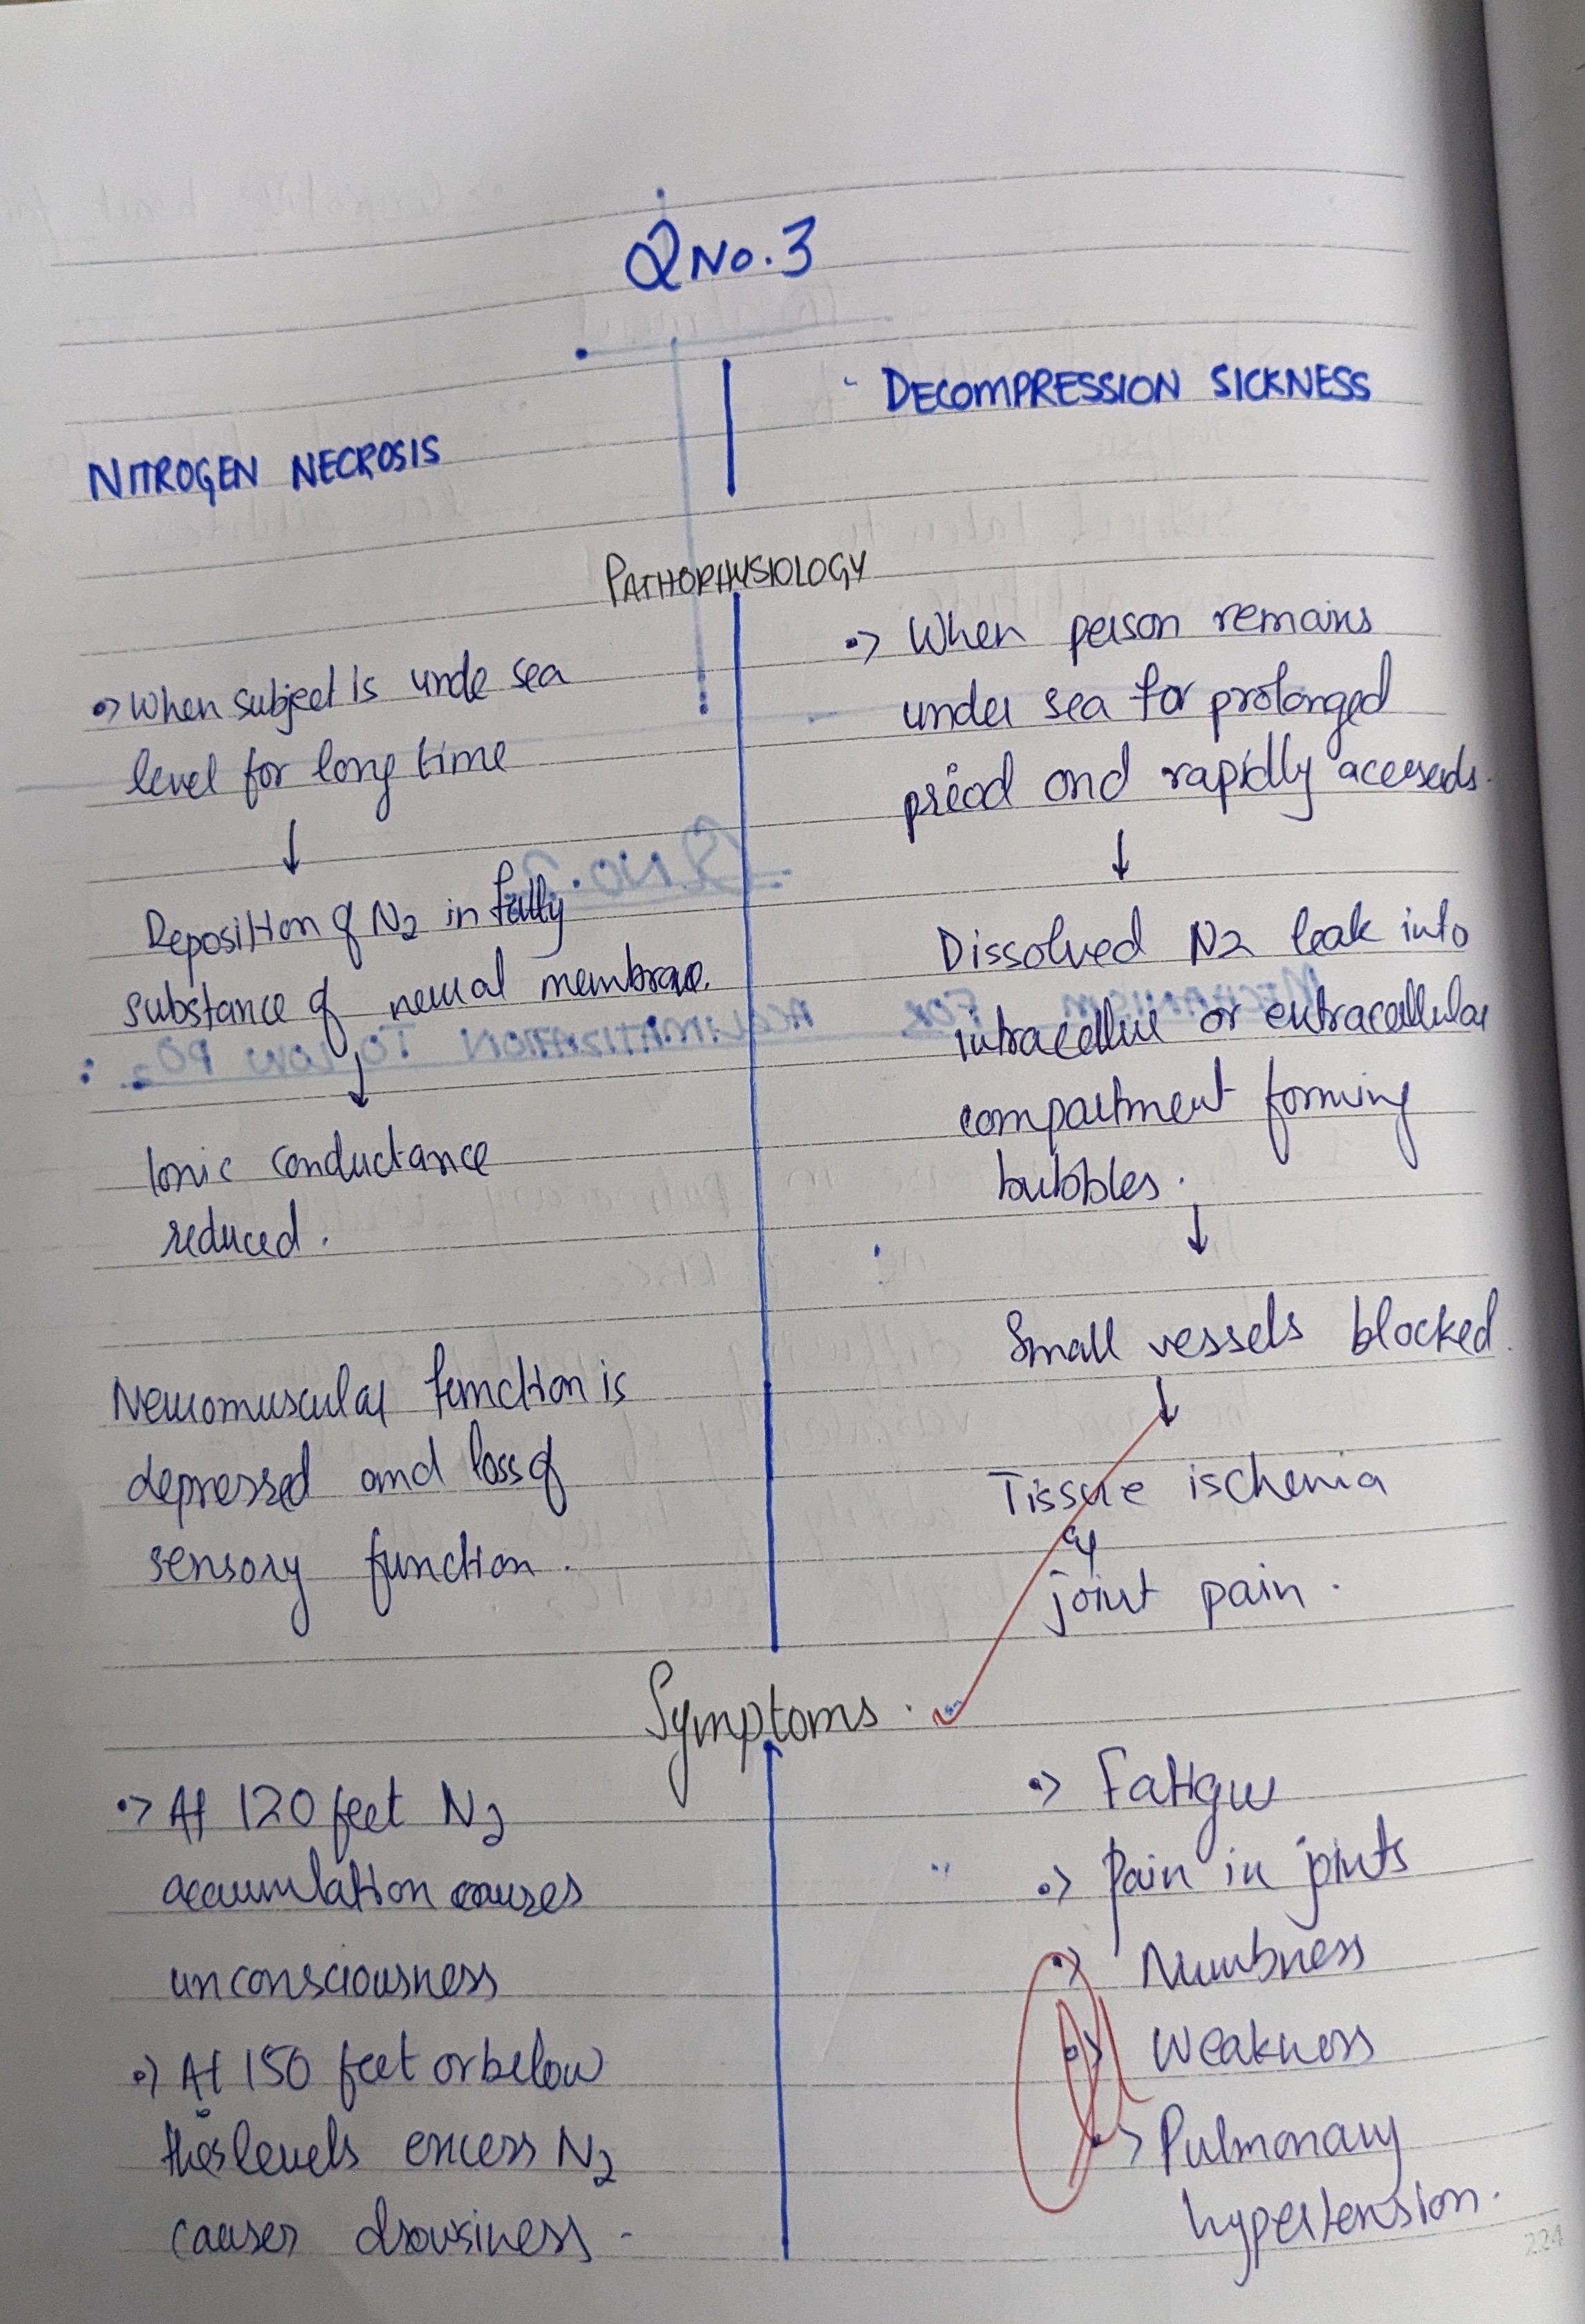 Q No. 3
NITROGEN NECROSIS
DECOMPRESSION SICKNESS
PATHOPHYSIOLOGY
When subject is unde sea
level for long time
↓
Deposition of N2 in fatty
substance of neural membrane.
↓
Ionic conductance
reduced.
Neuromuscular function is
depressed and loss of
sensory function.
When person remains
under sea for prolonged
priod and rapidly
↓
Dissolved N2 leak into
or extracellular
compartment forming
bubbles.
↓
Small vessels blocked.
↓
Tissue ischemia
&
joint pain.
Symptoms.
At 120 feet N2
accumulation causes
unconsciousness
At 150 feet or below
levels excess N2
causes drowsiness.
Fatigue
Pain in joints
Numbness
Weakness
Pulmonary
hypertension.
224